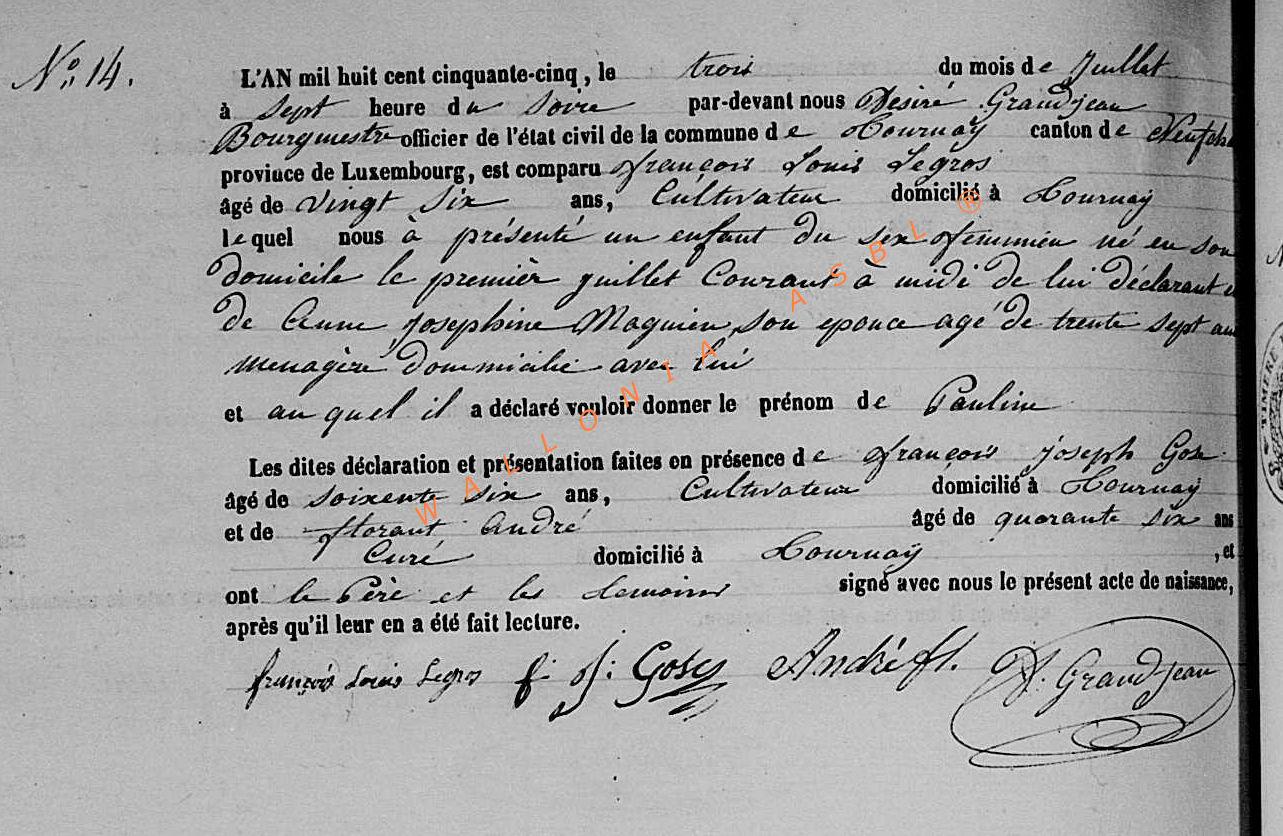 No: 14.
L'AN mil huit cent cinquante-cinq, le trois du mois de Juillet
à sept heure du soire par-devant nous Désiré Grandjean
Bourgmestre officier de l'état civil de la commune de Tournay canton de Neufch
province de Luxembourg, est comparu françois Louis Legros
âgé de vingt six ans, Cultivateur domicilié à Tournay
lequel nous à présenté un enfant du sex femmien né en son
domicile le premièr juillet Courant à midi de lui déclarant
de Anne josephine Magnien, son epouce agé de trente sept an
menagère dommicilié avec lui
et au quel il a déclaré vouloir donner le prénom de Pauline
Les dites déclaration et présentation faites en présence de françois joseph
âgé de soixente six ans, Cultivateur domicilié à Tournay
et de florant André âgé de quarante six ans
Curé domicilié à Tournay, et
ont le Père et les temoins signé avec nous le présent acte de naissance,
après qu'il leur en a été fait lecture.
françois Louis Legros f. j: André fl. D. Grandjean
WALLONIA ASBL ®
TIMBRE